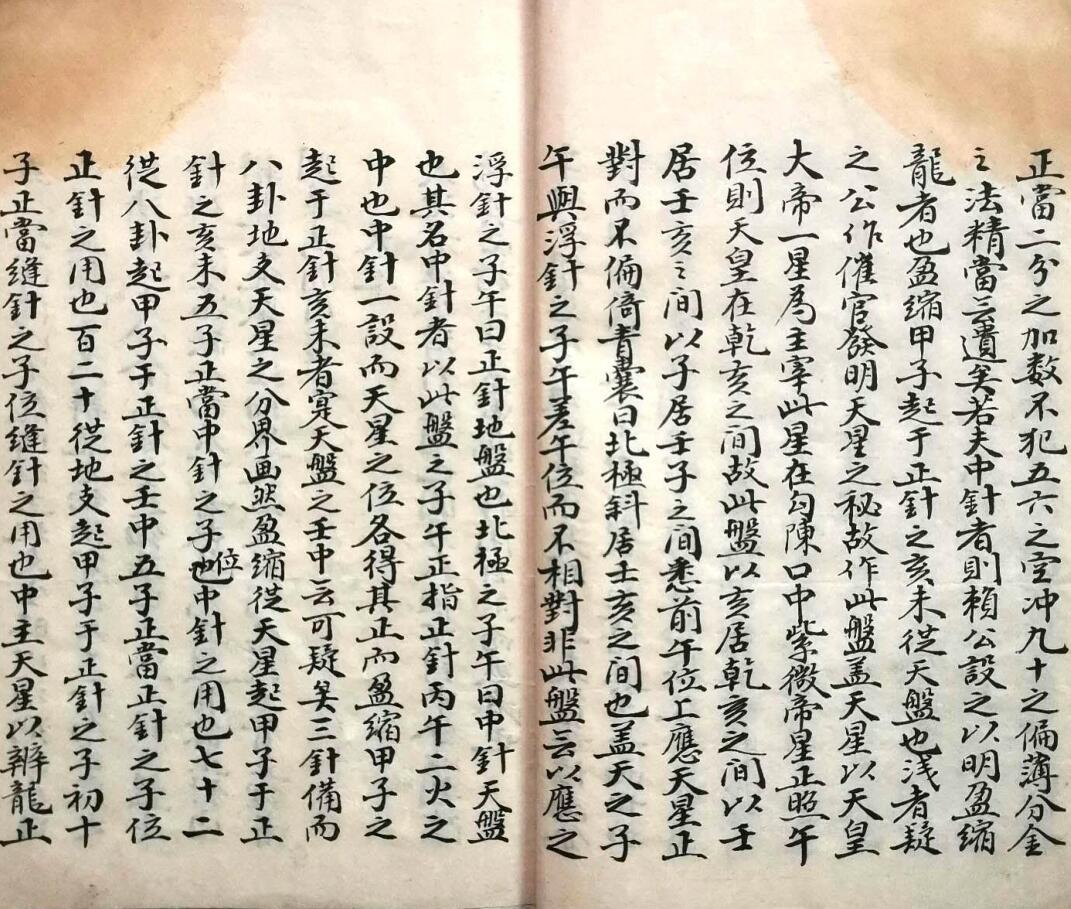 正當二分之加数不犯五六之空冲九十之偏薄分金
之法精當云遺矣若夫中針者則賴公設之以明盈縮
龍者也盈缩甲子起于正針之亥未從天盤也浅者疑
之公作催官發明天星之秘故作此盤盖天星以天皇
大帝一星為主宰此星在勾陳口中紫微帝星正照午
位則天皇在乾亥之間故此盤以亥居乾亥之间以壬
居壬亥之间以子居壬子之间悉前午位上應天星正
對而不偏倚青囊曰北極斜居壬亥之间也盖天之子
午與浮針之子午差午位而不相對非此盤云以應之
浮針之子午曰正針地盤也北極之子午曰中針天盤
也其名中針者以此盤之子午正指正針丙午二火之
中也中針一設而天星之位各得其正而盈縮甲子之
起于正針亥未者寔天盤之壬中云可疑矣三針備而
八卦地支天星之分界画然盈縮從天星起甲子于正
針之亥末五子正當中針之子位也中針之用也七十二
從八卦起甲子于正針之壬中五子正當正針之子位
正針之用也百二十從地支起甲子于正針之子初十
子正當缝針之子位缝針之用也中主天星以辨龍正